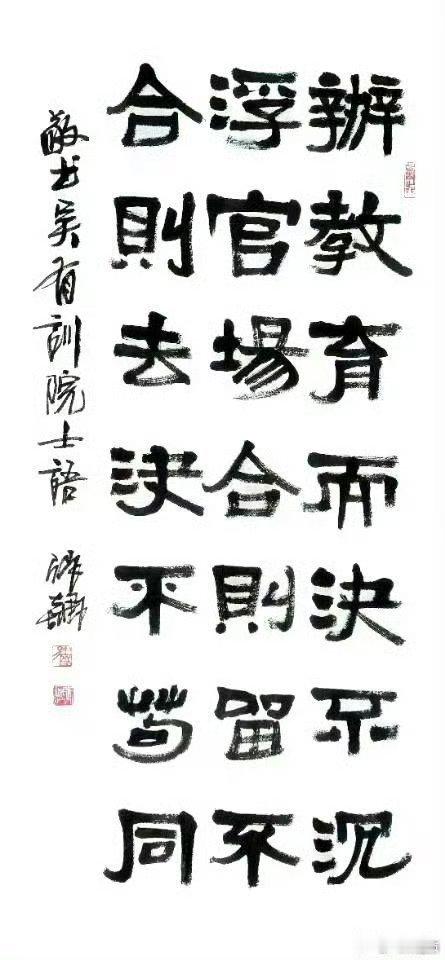 辦教育而決不沉
浮官場合則留不
合則去決不苟同
敬书吴有訓院士語